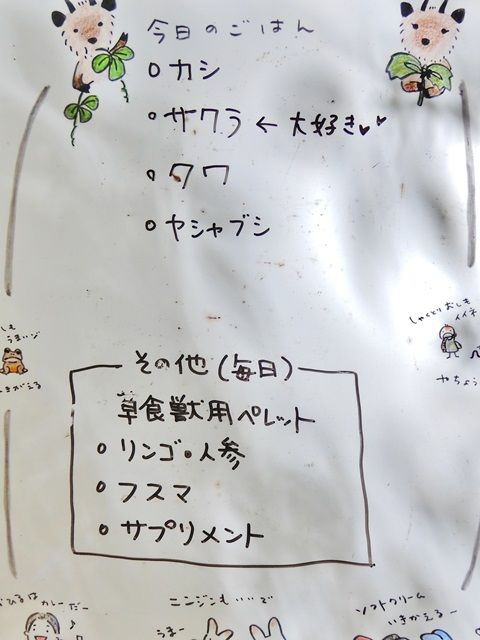 今日のごはん
○カシ
○サクラ←大好き♥♥
○クワ
○ヤシャブシ
しゃくとりおしも
イイネ
うまいッ
やちょう
その他(毎日)
草食獣用ペレット
○リンゴ・人参
○フスマ
○サプリメント
おひるはカレーだー♪
ニンジンもいいで
うまー
ソフトクリーム
いきかえるー